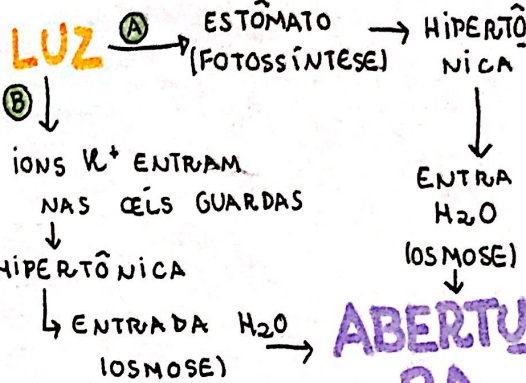 LUZ
A
ESTÔMATO
(FOTOSSÍNTESE)
HIPERTÔ
NICA
ENTRA
H2O
(OSMOSE)
B
ÍONS K+ ENTRAM
NAS CÉLS GUARDAS
HIPERTÔNICA
ENTRADA H2O
(OSMOSE)
ABERTU
RA